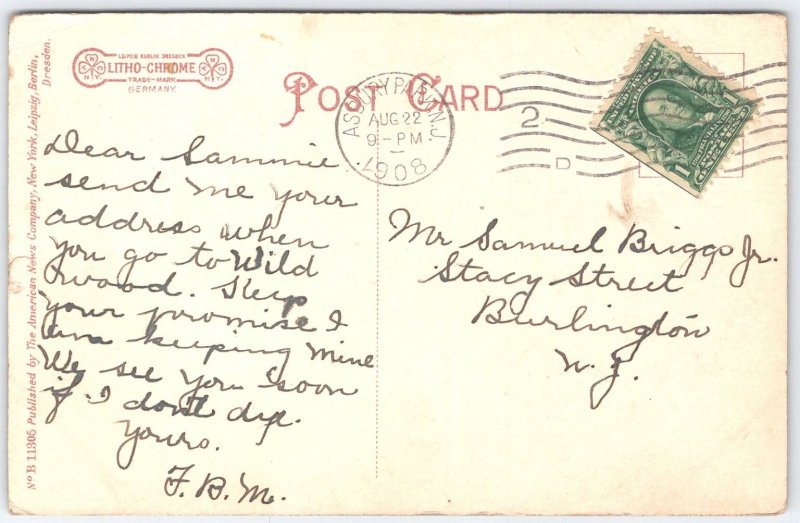 LEIPZIG BERLIN DRESDEN
LITHO-CHROME
TRADE-MARK
GERMANY.
POST CARD
ASBURY PARK, N.J.
AUG 22
9 - PM
1908
2
D
1
1
No B 11305 Published by The American News Company, New York, Leipzig, Berlin,
Dresden.
Dear Sammie
send me your
address when
you go to Wild
wood. Keep
your promise I
am keeping mine
We see you soon
if I dont die.
Yours.
F. B. M.
Mr Samuel Briggs Jr.
Stacy Street
Burlington
N. J.